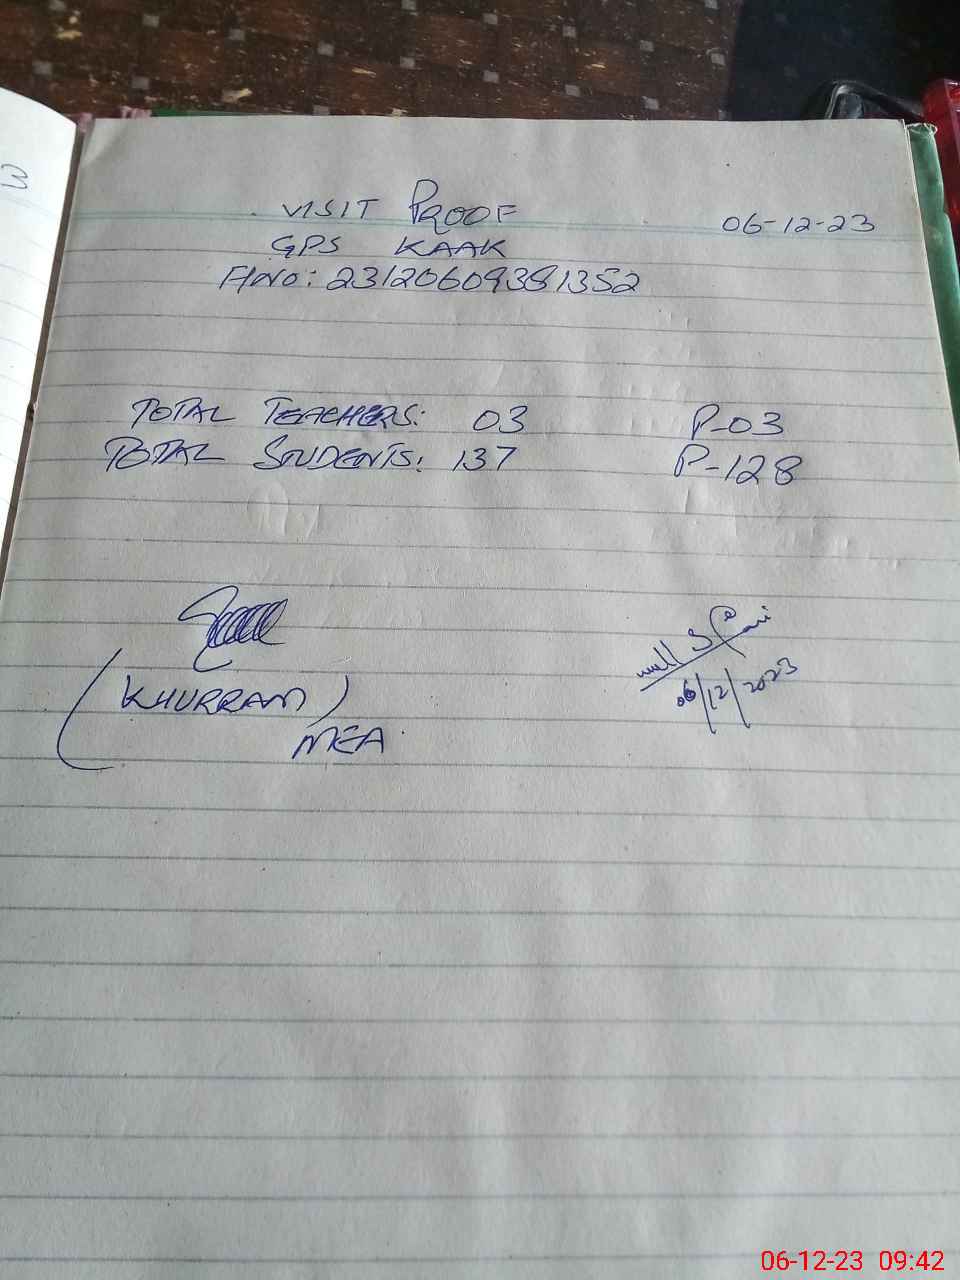 VISIT PROOF 06-12-23
GPS KAAK
A/NO: 23120609381352
TOTAL TEACHERS: 03 P-03
TOTAL STUDENTS: 137 P-128
(KHURRAM)
MEA
06/12/2023
06-12-23 09:42